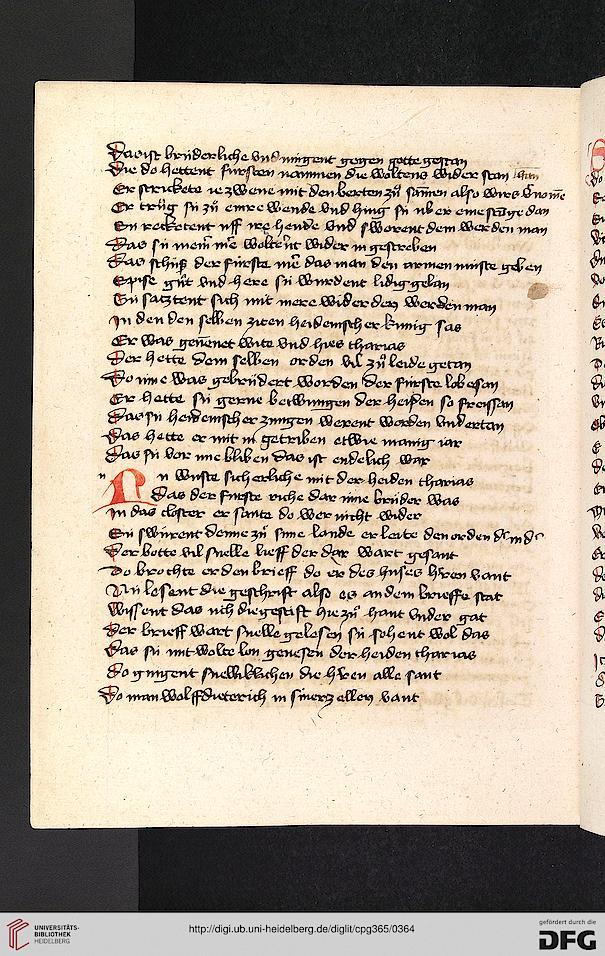 Das ist brüderliche vnd mügent gegen gotte gestan
Die do hettent fürsten nammen die woltens wider stan
Er strickete ie zwene mit den berten zü samen also wirs
Er trüg sü zü einre wende vnd hing sü v̈ber eine stange dan
Sü recketent vff ire hende vnd swwrent dem werden man
Das sü niem̄ me woltent wider in gestreben
Das schüff der fürste das man den armen müste geben
Spise güt vnd here sü wurdent lidig gelan
Sü satztent sich nit mere wider den werden man
In den den selben ziten heidenscher künig sas
Er was genenet wite vnd hies tharias
Der hette dem selben orden vil zü leide getan
Do inne was gebrüdert worden der fürste lobesan
Er hette sü gerne betwungen der heiden so freissan
Das sü heidenscher zungen werent worden vndertan
Das hette er mit in getriben etwie manig iar
Das sü vor ime bliben das ist endelich war
n
Nn wuste sicherliche nit der heiden tharias
Das der fürste riche dar inne brüder was
In das closter er sante do wer nicht wider
Sü swürent denne zü sime lande er leite den orden
Der botte vil snelle lieff der dar wart gesant
Do brochte er den brieff do er des huses herren vant
Nü losent die geschrift also es an dem brieffe stat
Wissent das üch die gestift hie zü hant vnder gat
Der brieff wart snelle gelesen sü sohent wol das
Das sü nit wolte lon genesen der heiden tharias
Do gingent snelliklichen die herren alle sant
Do man wolffdieterich in sinerz ellen vant
UNIVERSITÄTS-
BIBLIOTHEK
HEIDELBERG
http://digi.ub.uni-heidelberg.de/diglit/cpg365/0364
gefördert durch die
DFG